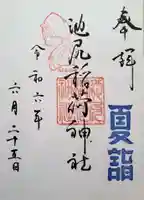 奉拝
夏詣
池尻稲荷神社
令和六年
六月二十五日